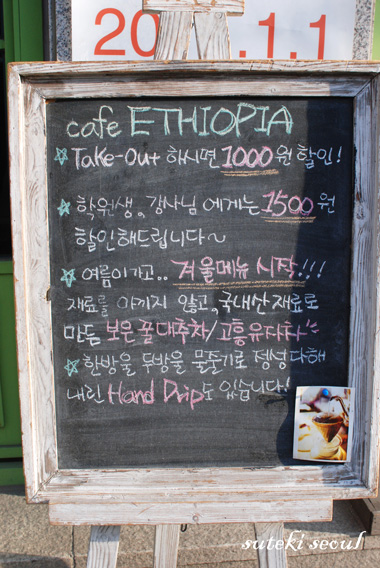 20 .1.1
cafe ETHIOPIA
Take-Out 하시면 1000원 할인!
학원생, 강사님 에게는 1500원
할인해드립니다~
여름이가고.. 겨울메뉴 시작!!!
재료를 아끼지 않고, 국내산 재료로
만든 보은 꿀대추차/고흥유자차
한방울 두방울 물줄기로 정성다해
내린 Hand Drip도 있습니다!
suteki seoul